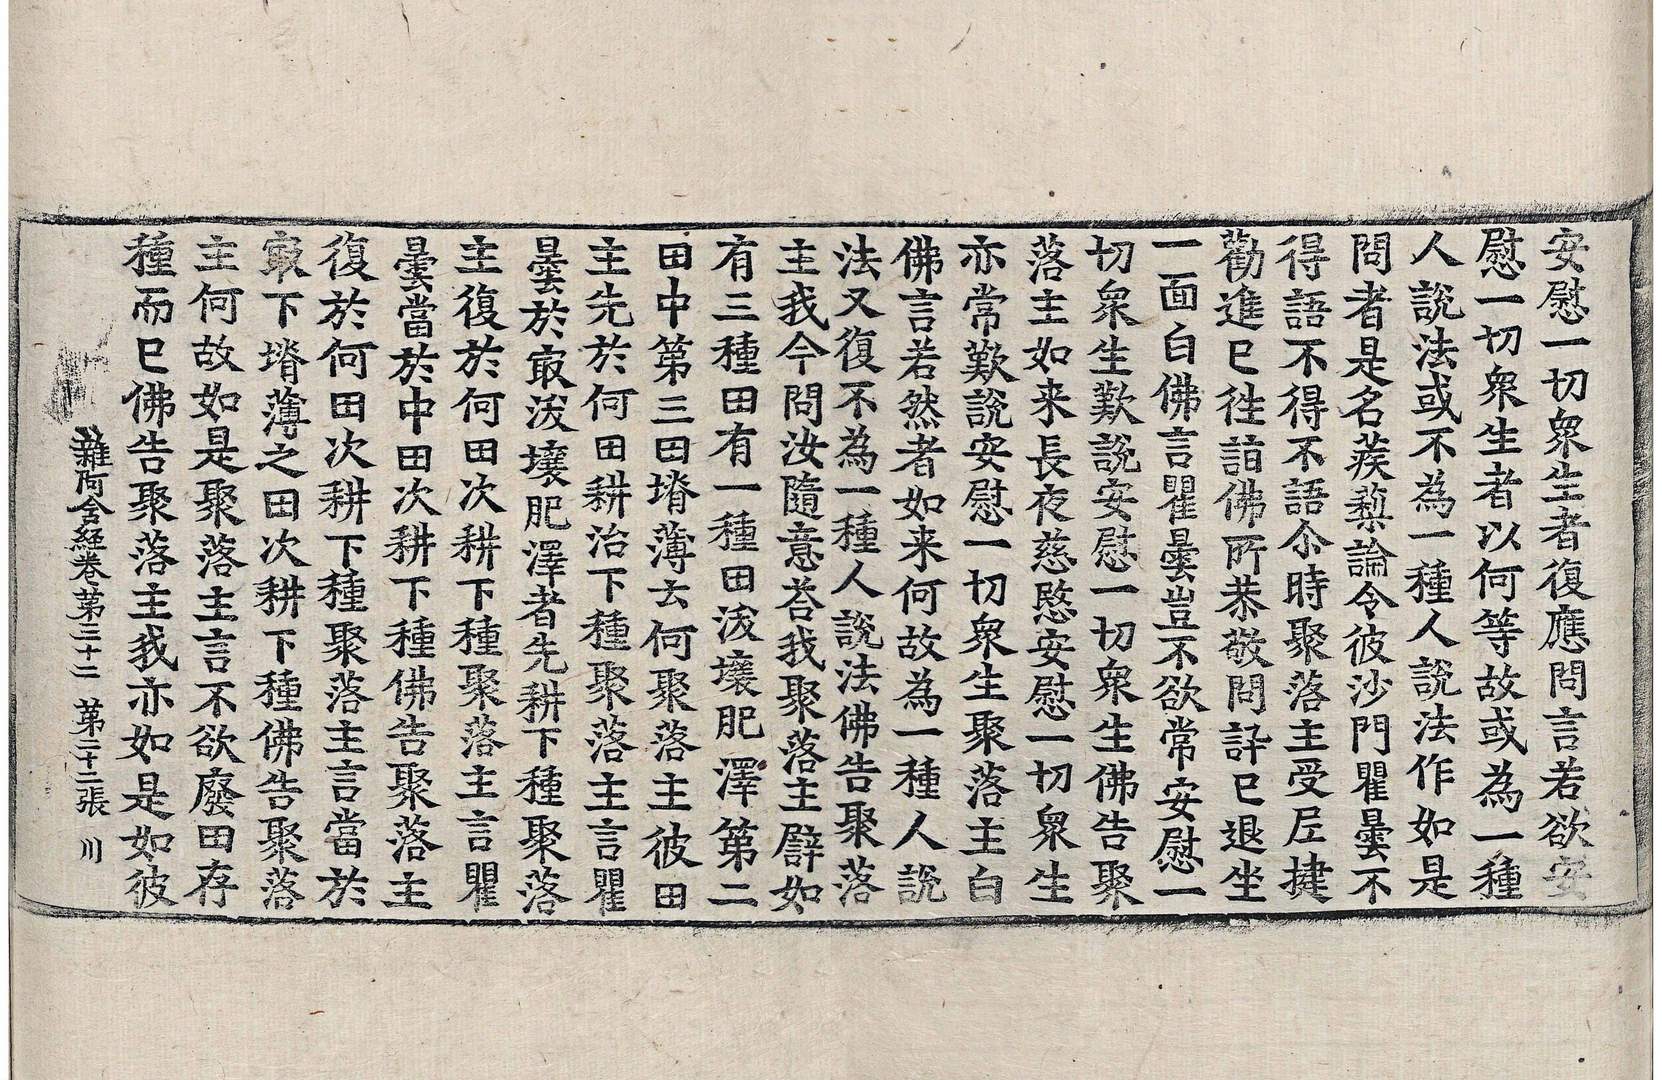 安慰一切衆生者復應問言若欲安
慰一切衆生者以何等故或為一種
人說法或不為一種人說法作如是
問者是名蒺䔧論令彼沙門瞿曇不
得語不得不語尒時聚落主受㞐揵
勸進已徃詣佛所恭敬問訊已退坐
一面白佛言瞿曇豈不欲常安慰一
切衆生歎說安慰一切衆生佛告聚
落主如来長夜慈愍安慰一切衆生
亦常歎說安慰一切衆生聚落主白
佛言若然者如来何故為一種人說
法又復不為一種人說法佛告聚落
主我今問汝隨意荅我聚落主譬如
有三種田有一種田沃壤肥澤第二
田中第三田塉薄云何聚落主彼田
主先於何田耕治下種聚落主言瞿
曇於㝡沃壤肥澤者先耕下種聚落
主復於何田次耕下種聚落主言瞿
曇當於中田次耕下種佛告聚落主
復於何田次耕下種聚落主言當於
㝡下塉薄之田次耕下種佛告聚落
主何故如是聚落主言不欲廢田存
種而已佛告聚落主我亦如是如彼
雜阿含經卷第三十二　第二十二張　川